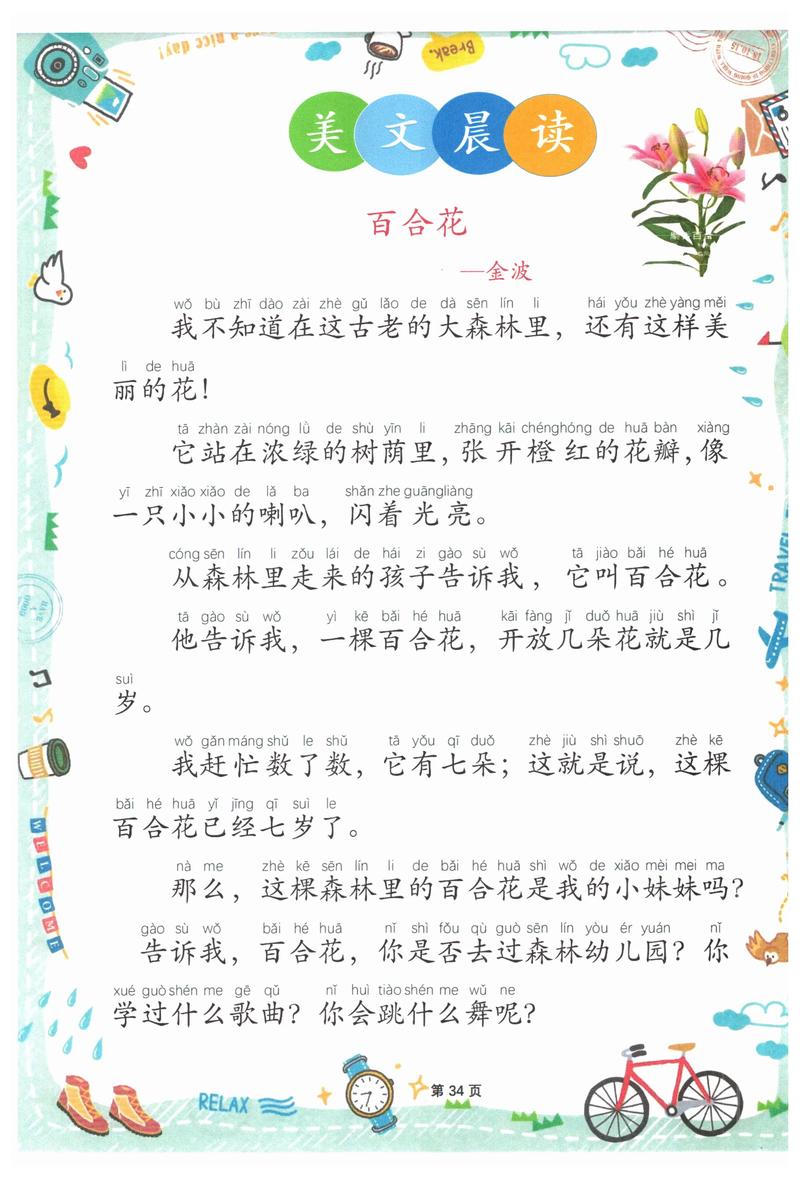 Have a nice day!
Break.
美文晨读
百合花
—金波
wǒ bù zhī dào zài zhè gǔ lǎo de dà sēn lín li hái yǒu zhè yàng měi
我不知道在这古老的大森林里，还有这样美
lì de huā
丽的花！
tā zhàn zài nóng lǜ de shù yīn li zhāng kāi chéng hóng de huā bàn xiàng
它站在浓绿的树荫里，张开橙红的花瓣，像
yī zhī xiǎo xiǎo de lǎ ba shǎn zhe guāng liàng
一只小小的喇叭，闪着光亮。
cóng sēn lín li zǒu lái de hái zi gào sù wǒ tā jiào bǎi hé huā
从森林里走来的孩子告诉我，它叫百合花。
tā gào sù wǒ yì kē bǎi hé huā kāi fàng jǐ duǒ huā jiù shì jǐ
他告诉我，一棵百合花，开放几朵花就是几
suì
岁。
wǒ gǎn máng shǔ le shǔ tā yǒu qī duǒ zhè jiù shì shuō zhè kē
我赶忙数了数，它有七朵；这就是说，这棵
bǎi hé huā yǐ jīng qī suì le
百合花已经七岁了。
nà me zhè kē sēn lín li de bǎi hé huā shì wǒ de xiǎo mèi mei ma
那么，这棵森林里的百合花是我的小妹妹吗？
gào sù wǒ bǎi hé huā nǐ shì fǒu qù guò sēn lín yòu ér yuán nǐ
告诉我，百合花，你是否去过森林幼儿园？你
xué guò shén me gē qǔ nǐ huì tiào shén me wǔ ne
学过什么歌曲？你会跳什么舞呢？
TRAVEL
WELCOME
RELAX
第 34 页